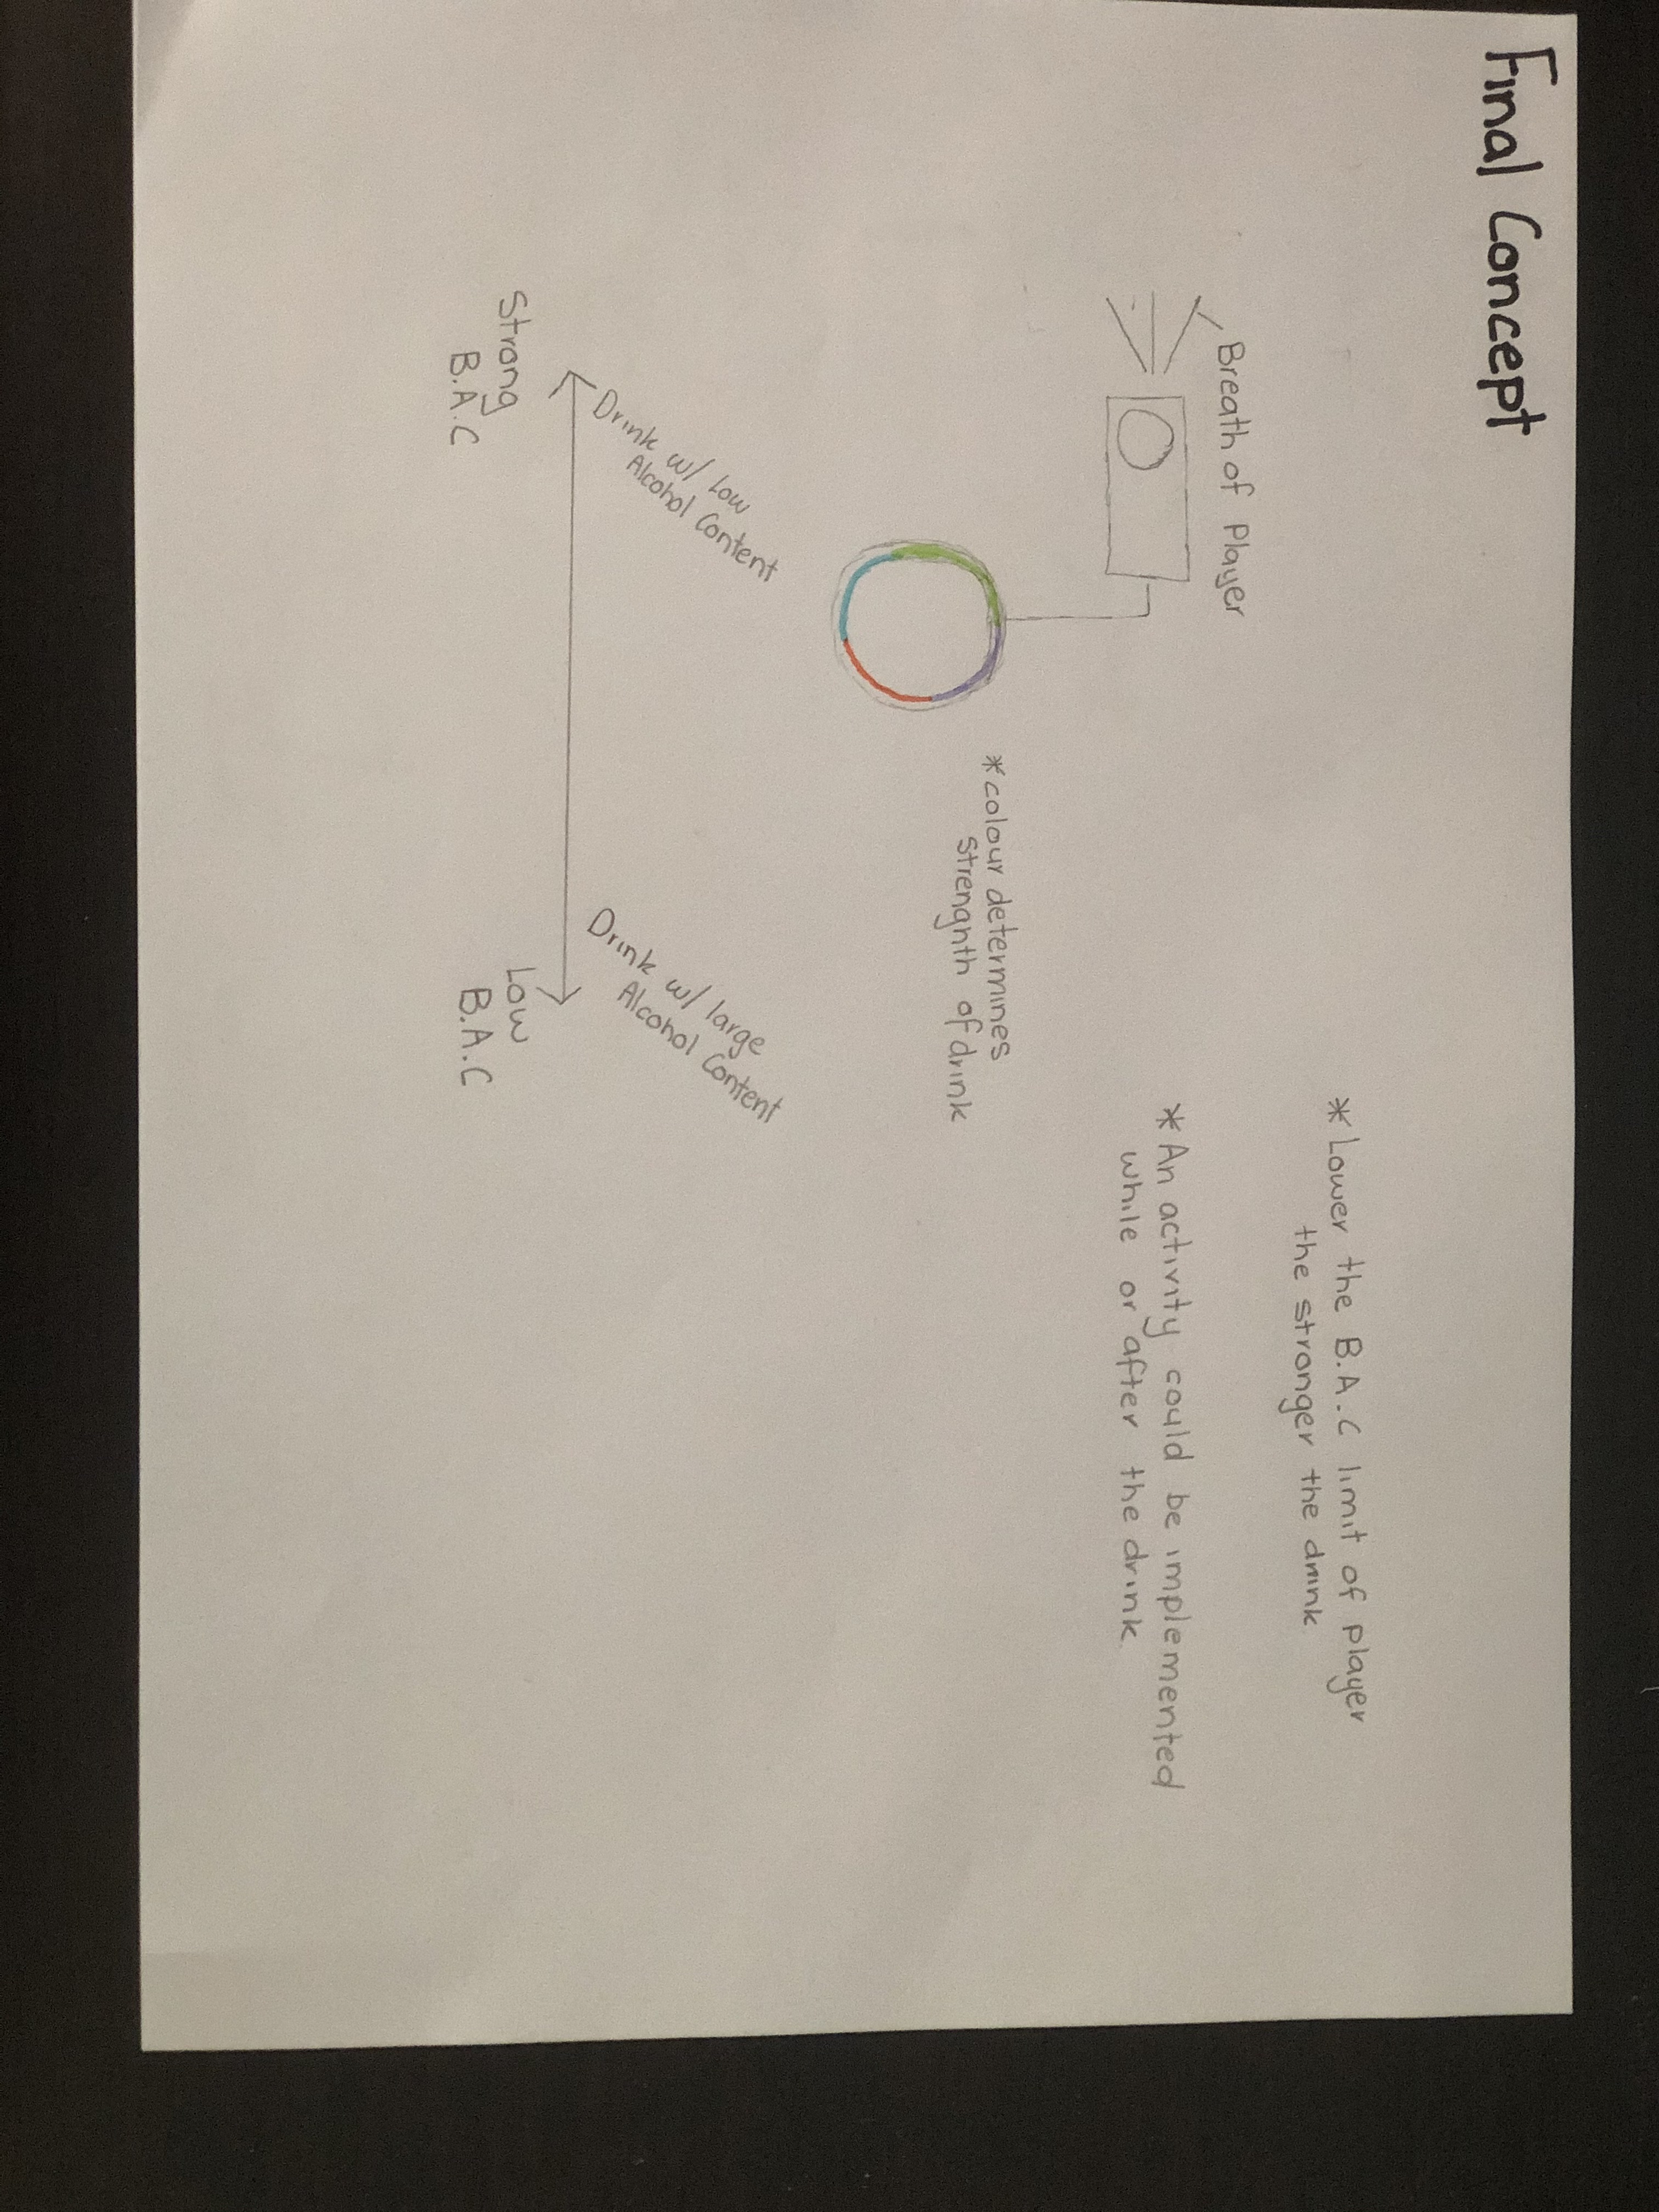 Final Concept
Breath of Player
*Lower the B.A.C limit of player
the stronger the drink
*An activity could be implemented
while or after the drink
*colour determines
strengnth of drink
Drink w/ Low
Alcohol Content
Drink w/ large
Alcohol Content
Strong
B.A.C
Low
B.A.C